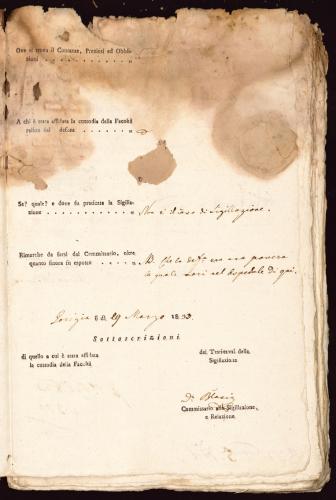 Ove si trova il Contante, Preziosi ed Obbli-
gazioni . . . . . . . . . . . .
A chi è stata affidata la custodia della Facoltà
relitta dal defunto . . . . . . . .
Se? quale? e dove fu praticata la Sigilla-
zione . . . . . . . . . . . . Non è il caso di sigillazione.
Rimarche da farsi dal Commissario, oltre
quanto finora fu esposto . . . . . era povera
la quale nel ospedale di qui.
Gorizia li 29 Marzo 1833.
Sottoscrizioni
di quello a cui è stata affidata
la custodia della Facoltà
dei Testimonj della
Sigillazione
Commissario alla Sigillazione,
e Relazione